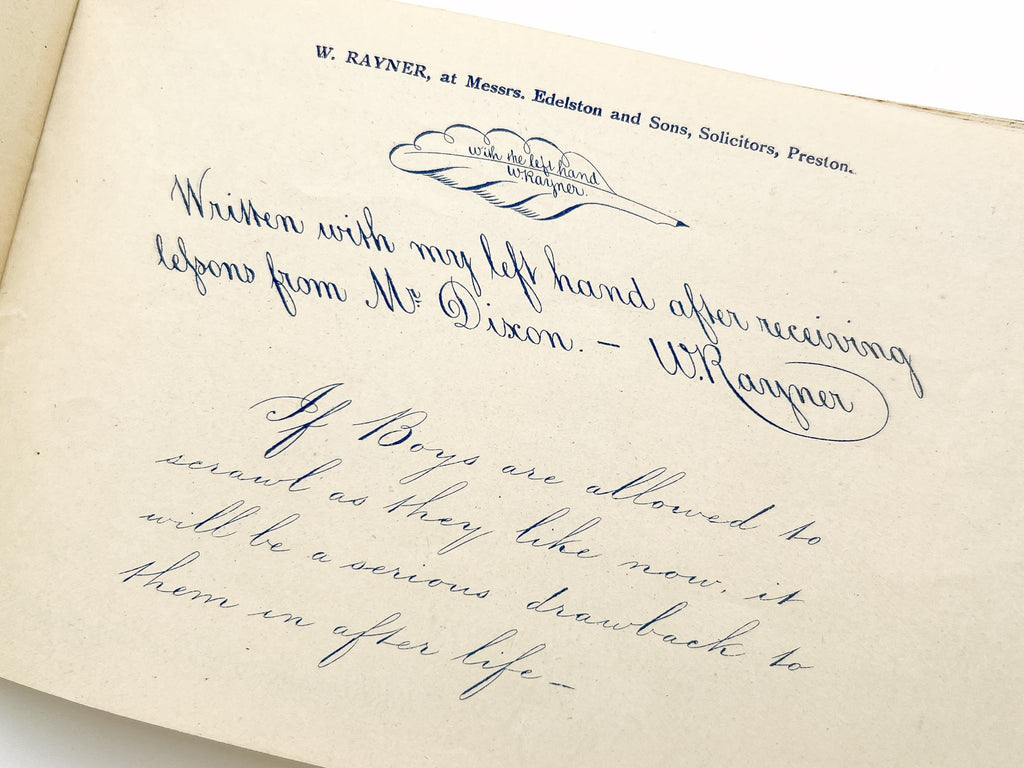 W. RAYNER, at Messrs. Edelston and Sons, Solicitors, Preston.
with the left hand
W. Rayner.
Written with my left hand after receiving
leſsons from Mr. Dixon. — W. Rayner
If Boys are allowed to
scrawl as they like now, it
will be a serious drawback to
them in after life —